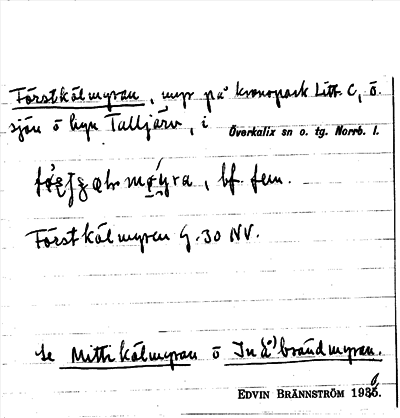 Förstkälmyran, myr på kronopark Litt. C, ö.
sjön ö byn Talljärv, i Överkalix sn o. tg. Norrb. l.
bf. fem.
Förstkälmyren G. 30 NV.
Se Mittikälmyran o brändmyran.
EDVIN BRÄNNSTRÖM 1936.